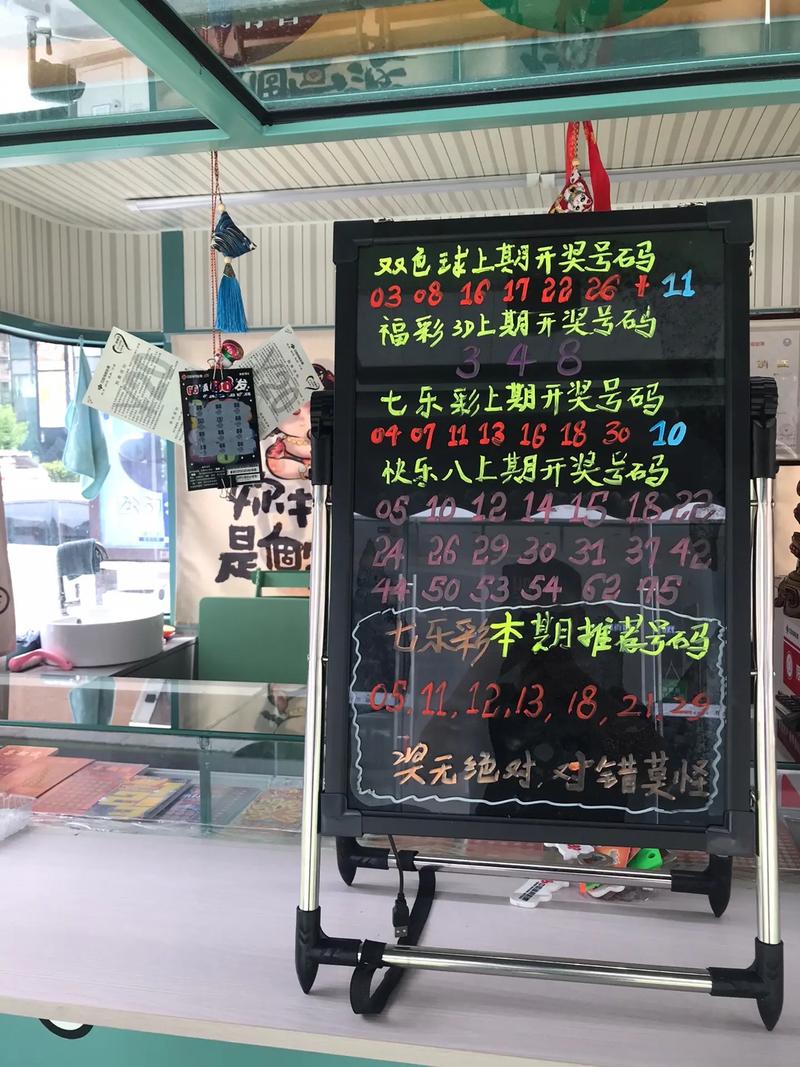 双色球上期开奖号码
03 08 16 17 22 26 + 11
福彩3D上期开奖号码
3 4 8
七乐彩上期开奖号码
04 07 11 13 16 18 30 10
快乐八上期开奖号码
05 10 12 14 15 18 22
24 26 29 30 31 37 42
44 50 53 54 62 75
七乐彩本期推荐号码
05.11.12.13,18,21.29
奖无绝对,对错莫怪
是個